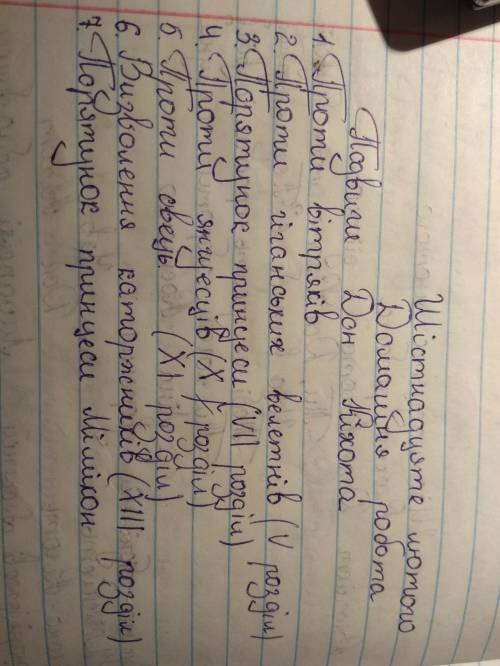 Шістнадцяте лютого
Домашня робота
Подвиги Дон Кіхота
1. Проти вітряків
2. Проти гіганських велетнів (V розділ)
3. Порятунок принцеси (VII розділ)
4. Проти янгуесців (X розділ)
5. Проти овець (XI розділ)
6. Визволення каторжників (XIII розділ)
7. Порятунок принцеси Мімікон